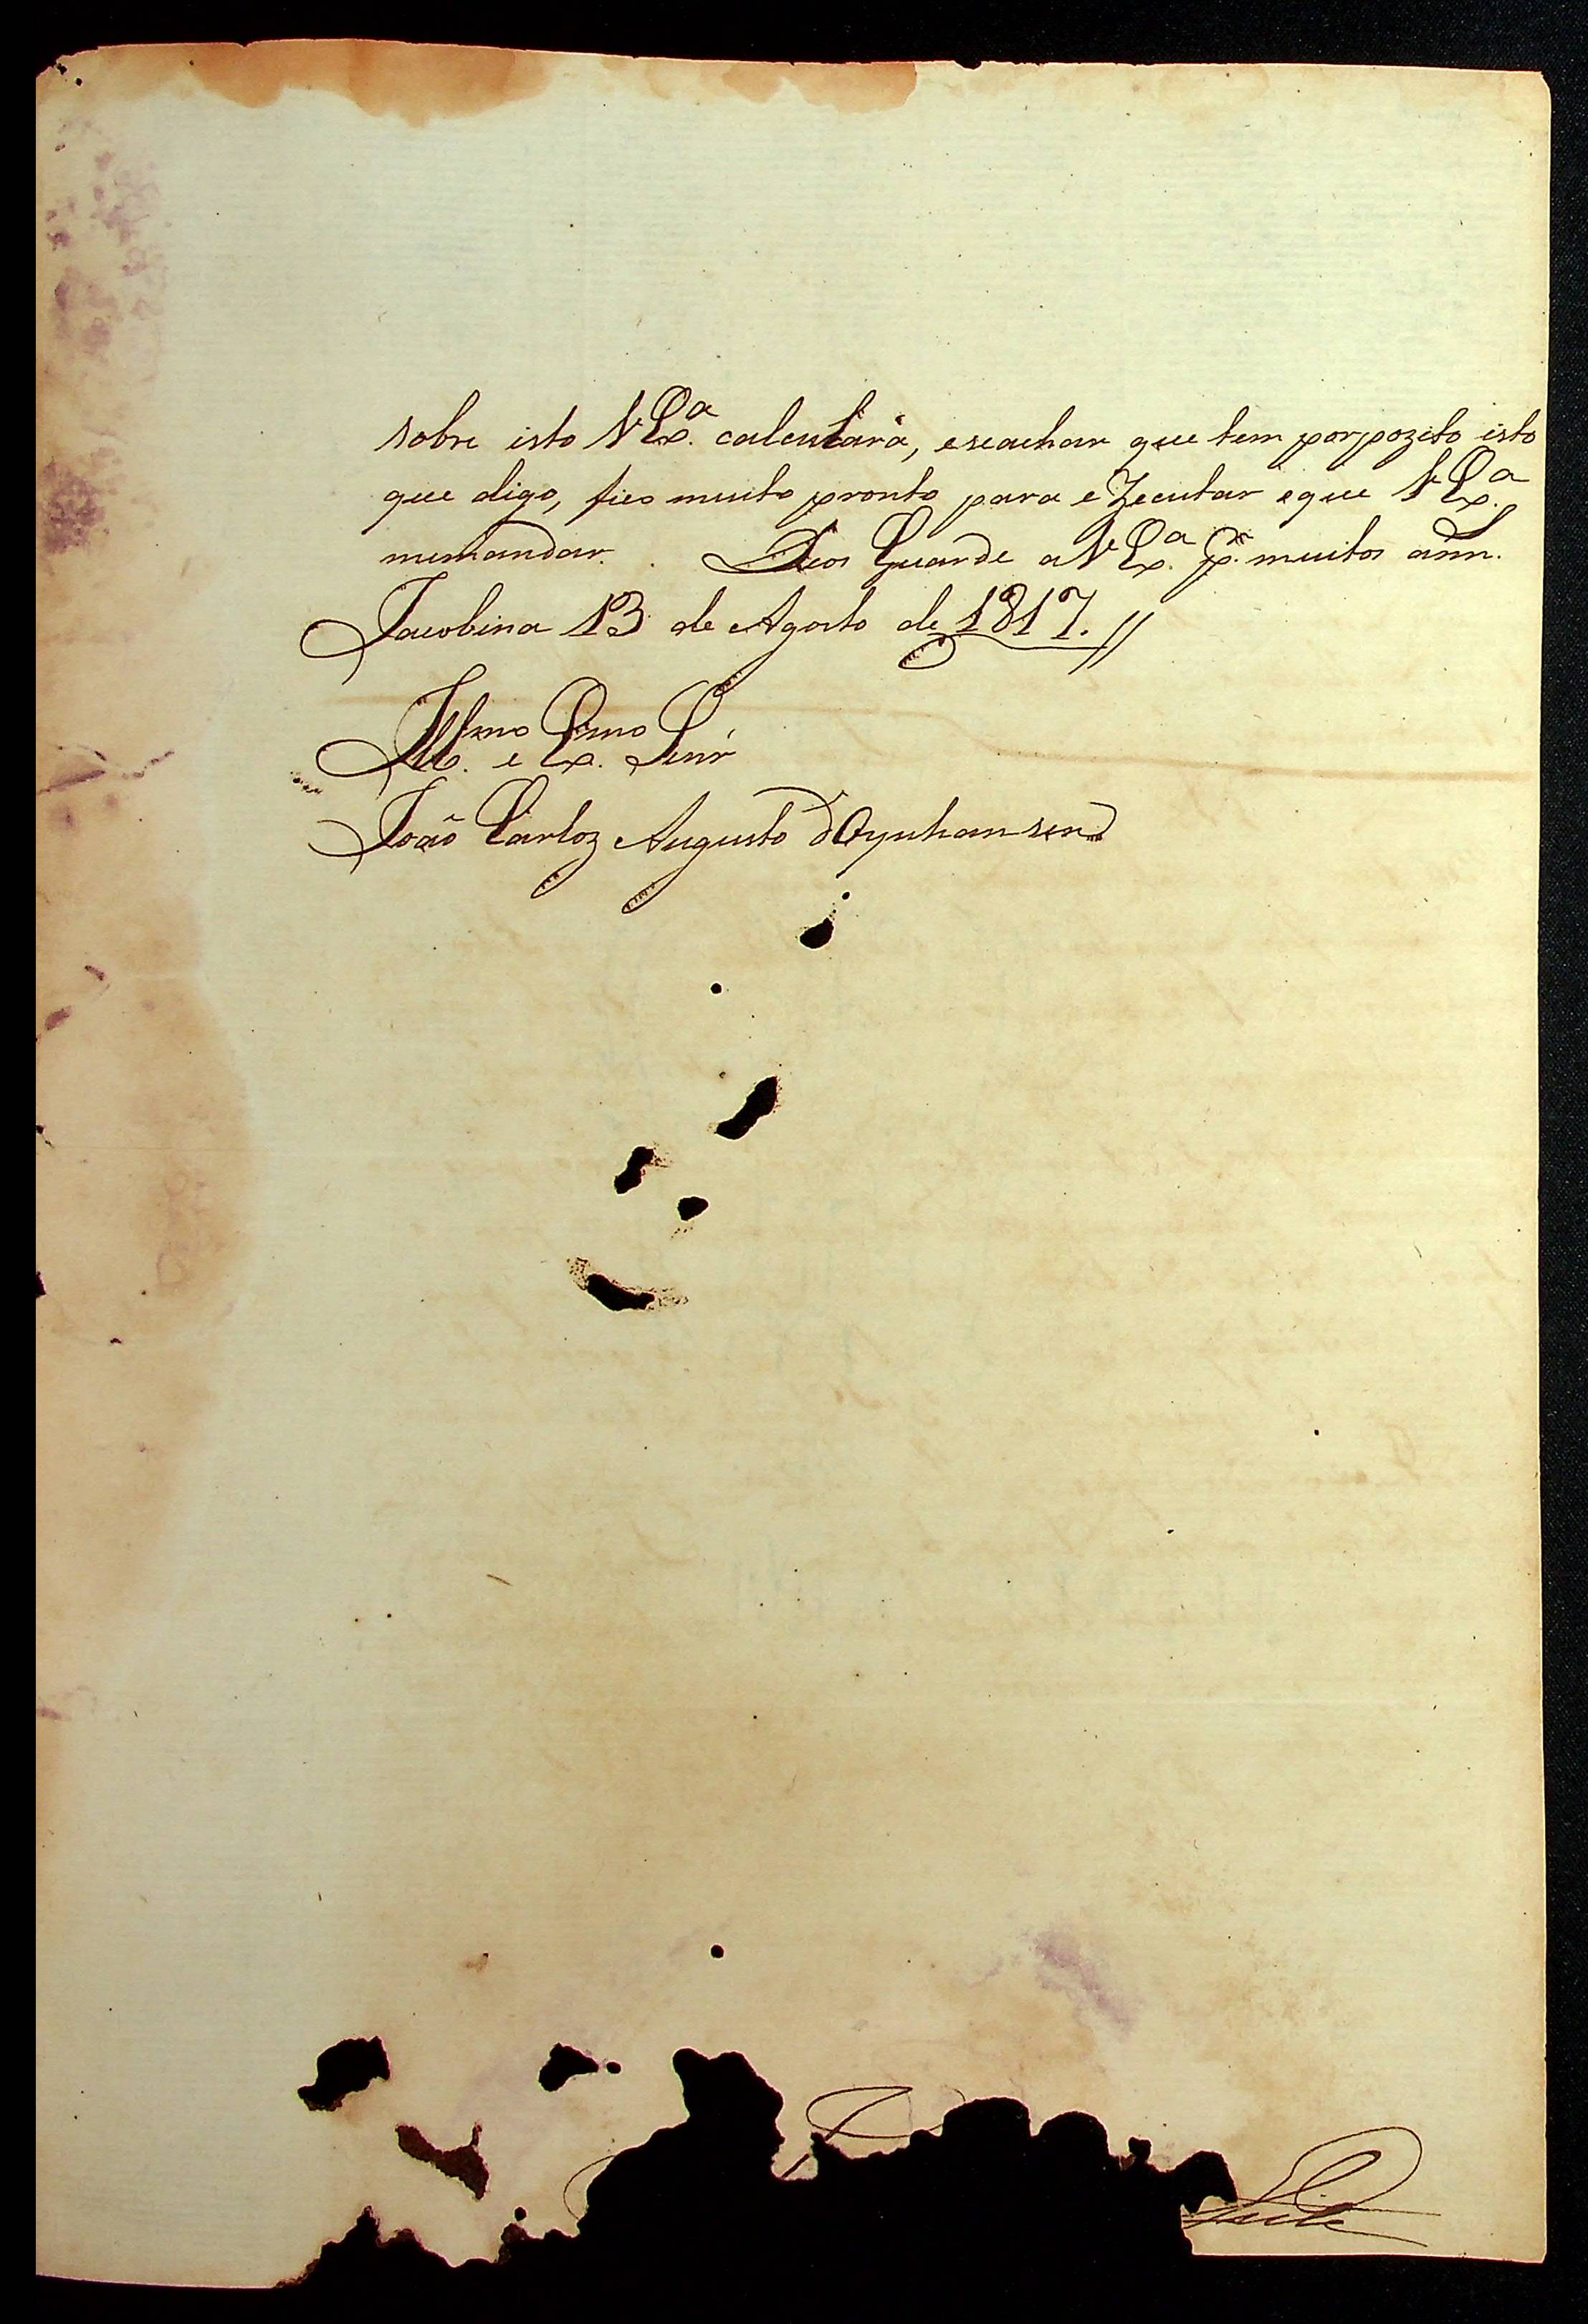 sobre isto VEx.ª calculará, eseachar que tem porpozito isto
que digo, fico muito pronto para eZecutar oque VEx.ª
memandar. Deos Guarde a VEx.ª p.ª muitos ann.
Jacobina 13 de Agosto de 1817.//
Ill.mo e Ex.mo Senr
João Carloz Augusto dOynhausend
Leite